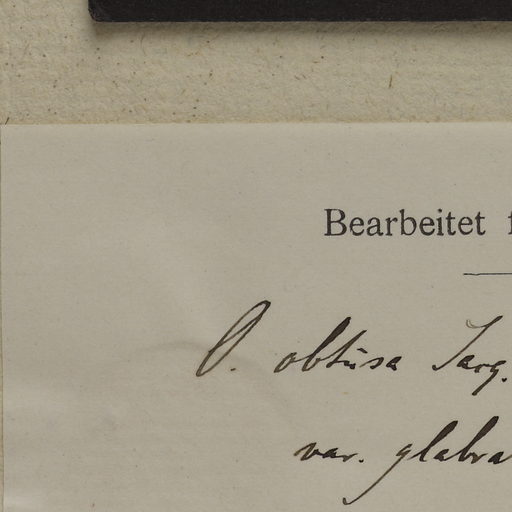 Bearbeitet f
O. obtusa Sarg.
var. glabra